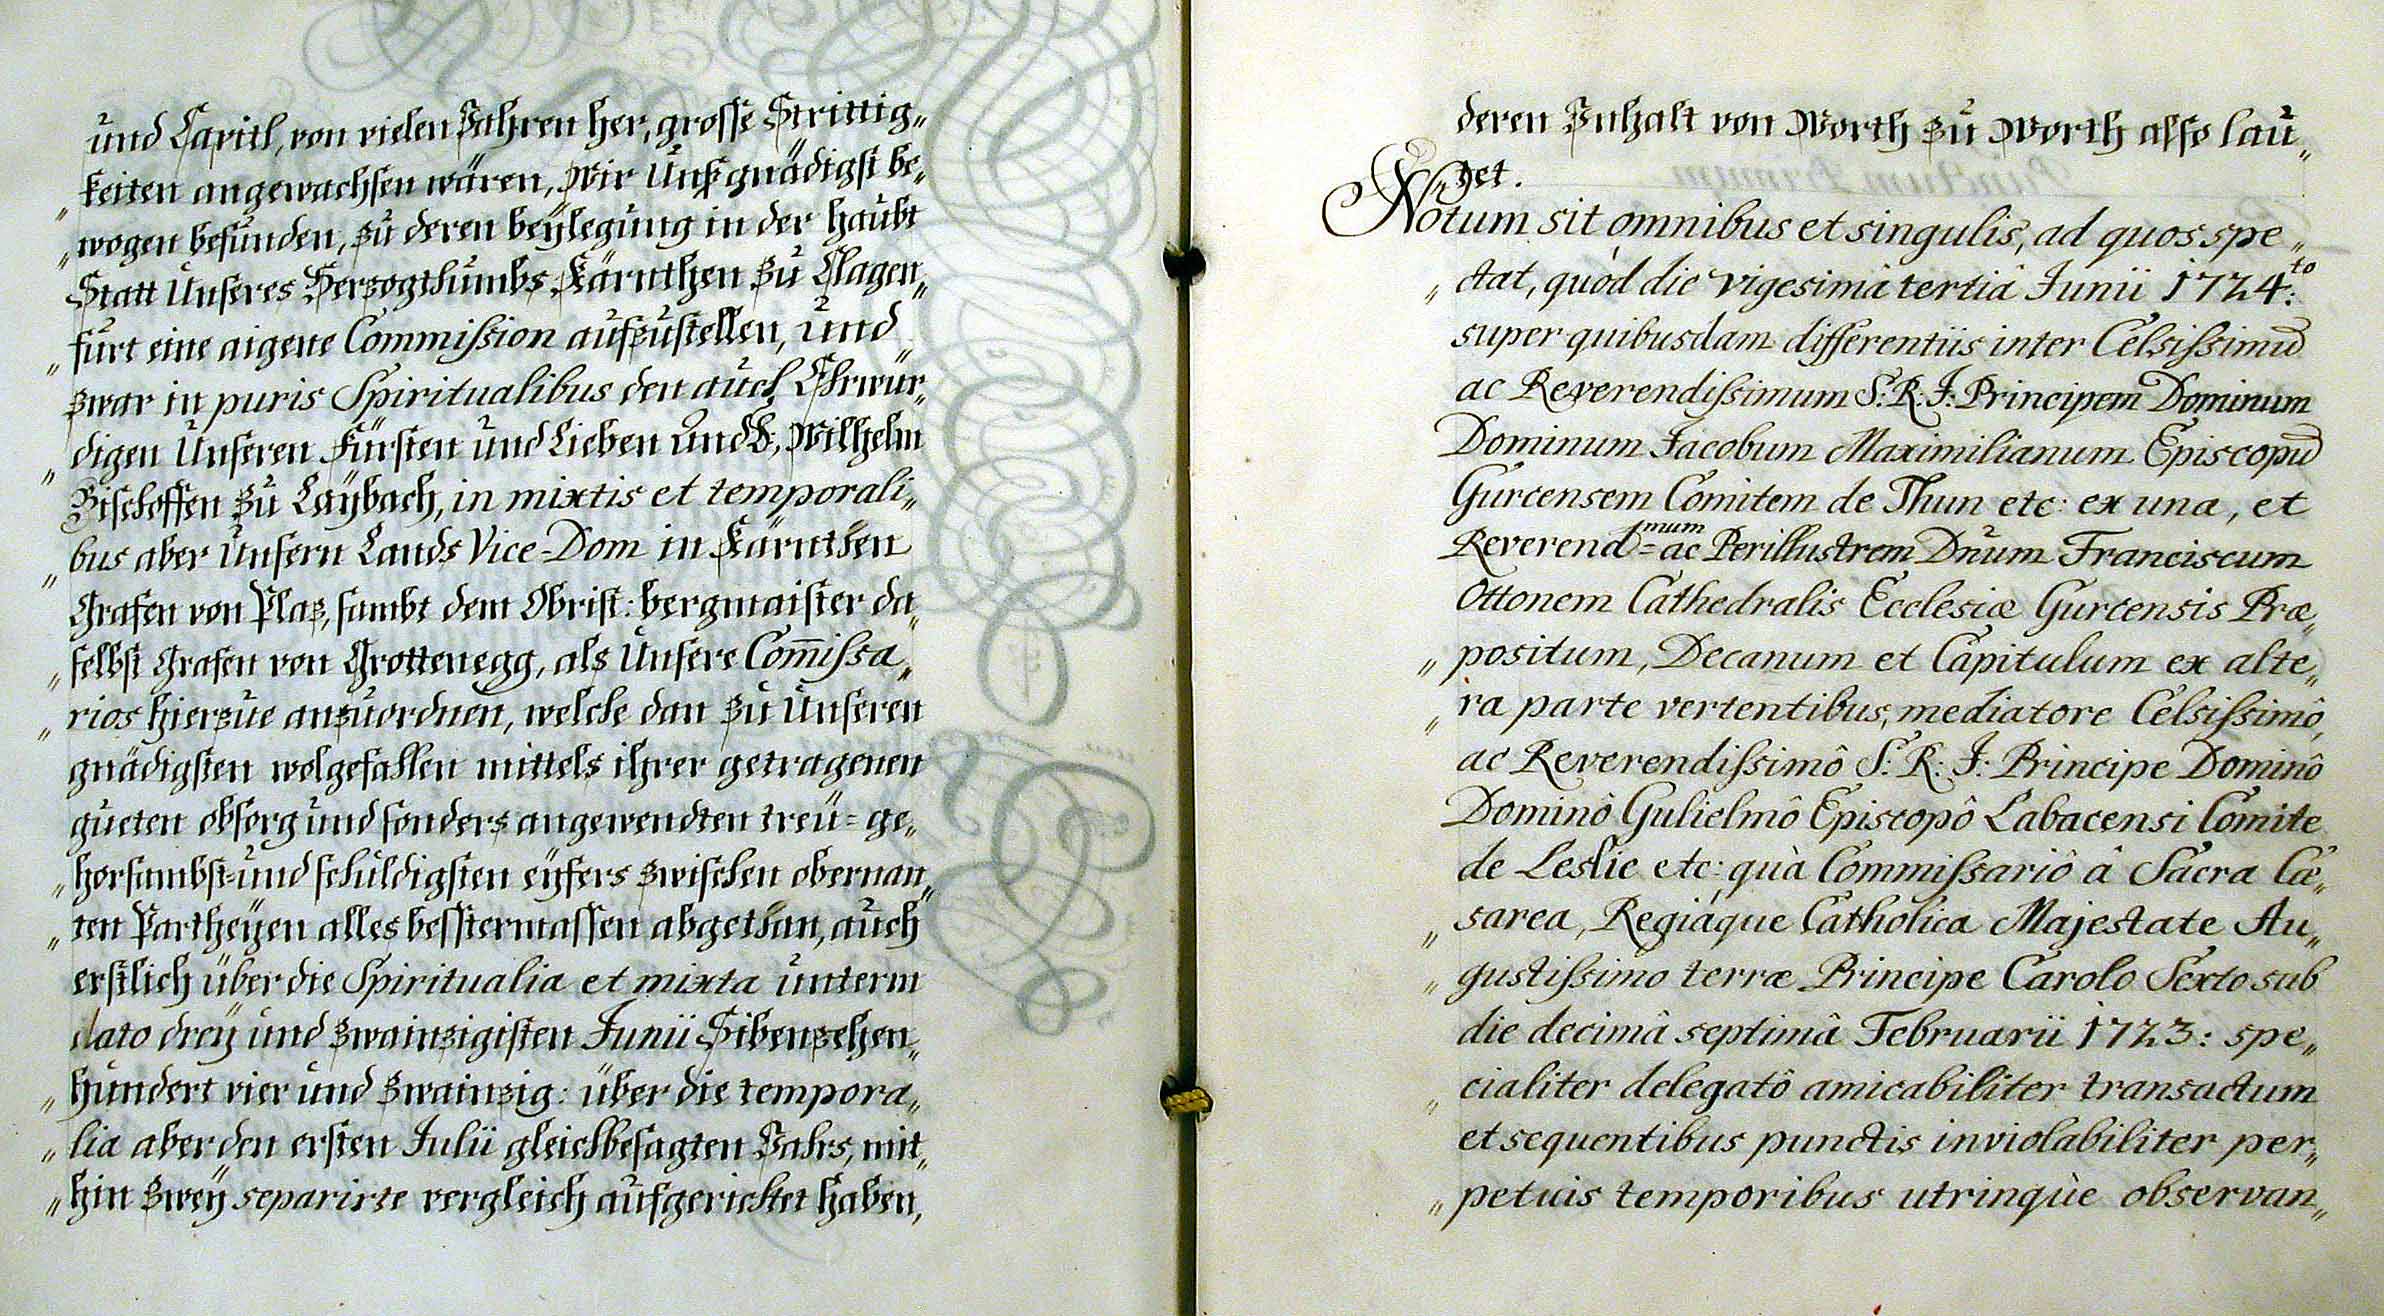 und Capitl, von vielen Jahren her, grosse Strittig„
„keiten angewachsen wären, Wir Unß gnädigst be„
„wogen befunden, zu deren beÿlegung in der haubt
Statt Unseres Herzogthumbs Kärnthen zu Clagen„
„furt eine aigene Commission aufzustellen, und
zwar in puris Spiritualibus den auch Ehrwür„
„digen Unseren Fürsten und Lieben Andł, Wilhelm
Bischoffen zu Laÿbach, in mixtis et temporali„
„bus aber Unsern Lands Vice-Dom in Kärnthen
Grafen von Plaz, sambt dem Obrist: bergmaister da„
„selbst Grafen von Grottenegg, als Unsere Com̄issa„
„rios hierzue anzuordnen, welche dan zu Unseren
gnädigsten wolgefallen mittels ihrer getragenen
gueten obsorg und sonders angewendten treü= ge„
„horsambst- und schuldigsten eÿfers zwischen obernan„
„ten Partheÿen alles besstermassen abgethan, auch
erstlich über die Spiritualia et mixta unterm
dato dreÿ und zwainzigisten Junii Sibenzehen„
„hundert vier und zwainzig: über die tempora„
„lia aber den ersten Julii gleichbesagten Jahrs, mit„
„hin zweÿ separirte vergleich aufgerichtet haben,
deren Inhalt von Worth zu Worth also lau„
„tet.
Notum sit omnibus et singulis, ad quos spe„
„ctat, quòd die vigesimâ tertiâ Junii 1724:to
super quibusdam differentiis inter Celsissimū
ac Reverendissimum S: R: J: Principem Dominum
Dominum Jacobum Maximilianum Episcopū
Gurcensem Comitem de Thun etc: ex una, et
Reverendmum= ac Perillustrem Dn̄um Franciscum
Ottonem Cathedralis Ecclesiæ Gurcensis Præ„
„positum, Decanum et Capitulum ex alte„
„ra parte vertentibus, mediatore Celsissimô,
ac Reverendissimô S: R: J: Principe Dominô
Dominô Gulielmô Episcopô Labacensi Comite
de Leslie etc: quà Commissariô â Sacra Cæ„
„sarea, Regiáque Catholica Majestate Au„
„gustissimo terræ Principe Carolo Sexto sub
die decimâ septimâ Februarii 1723: spe„
„cialiter delegatô amicabiliter transactum
et sequentibus punctis inviolabiliter per„
„petuis temporibus utrinqùe observan„